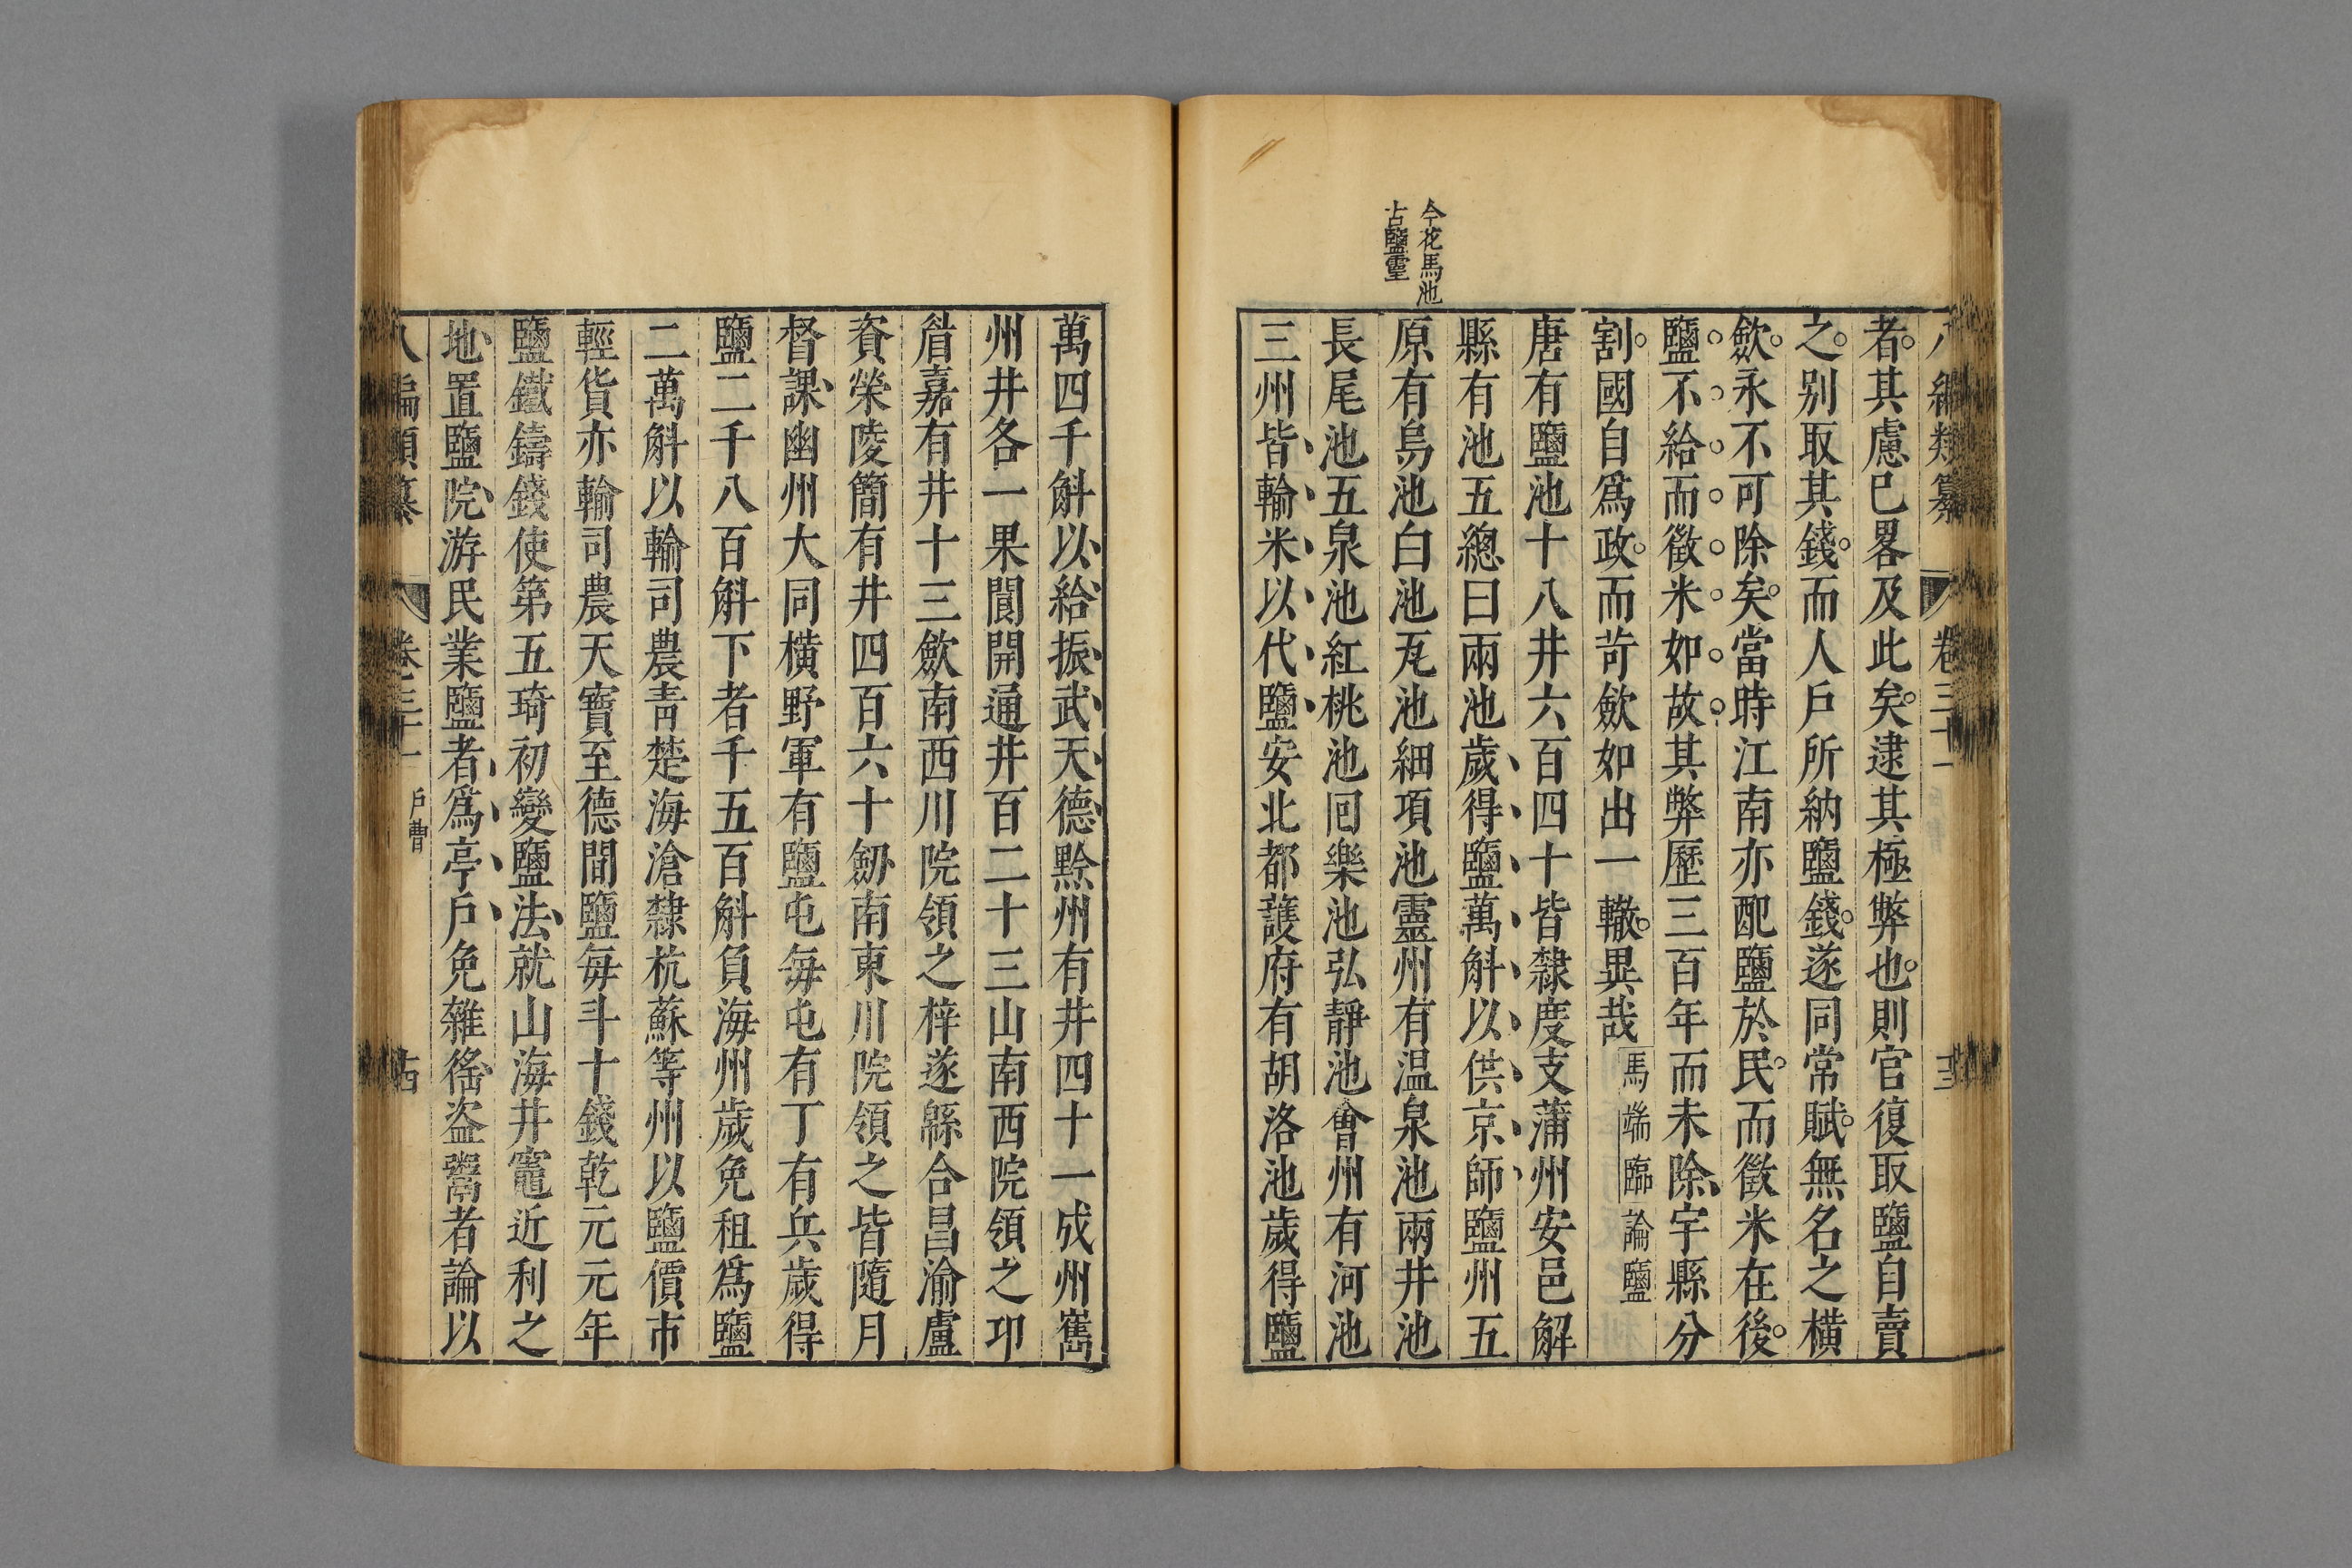 八編類纂 卷三十一 十三
者其慮已畧及此矣逮其極弊也則官復取鹽自賣
之别取其錢而人戶所納鹽錢遂同常賦無名之橫
歛永不可除矣當時江南亦配鹽於民而徵米在後
鹽不給而徵米如故其弊歷三百年而未除宇縣分
割國自爲政而苛歛如出一轍異哉馬端臨論鹽
唐有鹽池十八井六百四十皆隸度支蒲州安邑解
縣有池五總曰兩池歲得鹽萬斛以供京師鹽州五
今花馬池
古鹽靈
原有烏池白池瓦池細項池靈州有温泉池兩井池
長尾池五泉池紅桃池回樂池弘靜池會州有河池
三州皆輸米以代鹽安北都護府有胡洛池歲得鹽
萬四千斛以給振武天德黔州有井四十一成州嶲
州井各一果閬開通井百二十三山南西院領之卭
眉嘉有井十三歛南西川院領之梓遂緜合昌渝盧
資榮陵簡有井四百六十劒南東川院領之皆隨月
督課幽州大同橫野軍有鹽屯每屯有丁有兵歲得
鹽二千八百斛下者千五百斛負海州歲免租爲鹽
二萬斛以輸司農青楚海滄隸杭蘇等州以鹽價市
輕貨亦輸司農天寶至德間鹽每斗十錢乾元元年
鹽鐵鑄錢使第五琦初變鹽法就山海井竈近利之
地置鹽院游民業鹽者爲亭戶免雜徭盜鬻者論以
八編類纂 卷三十一 戶曹 十四